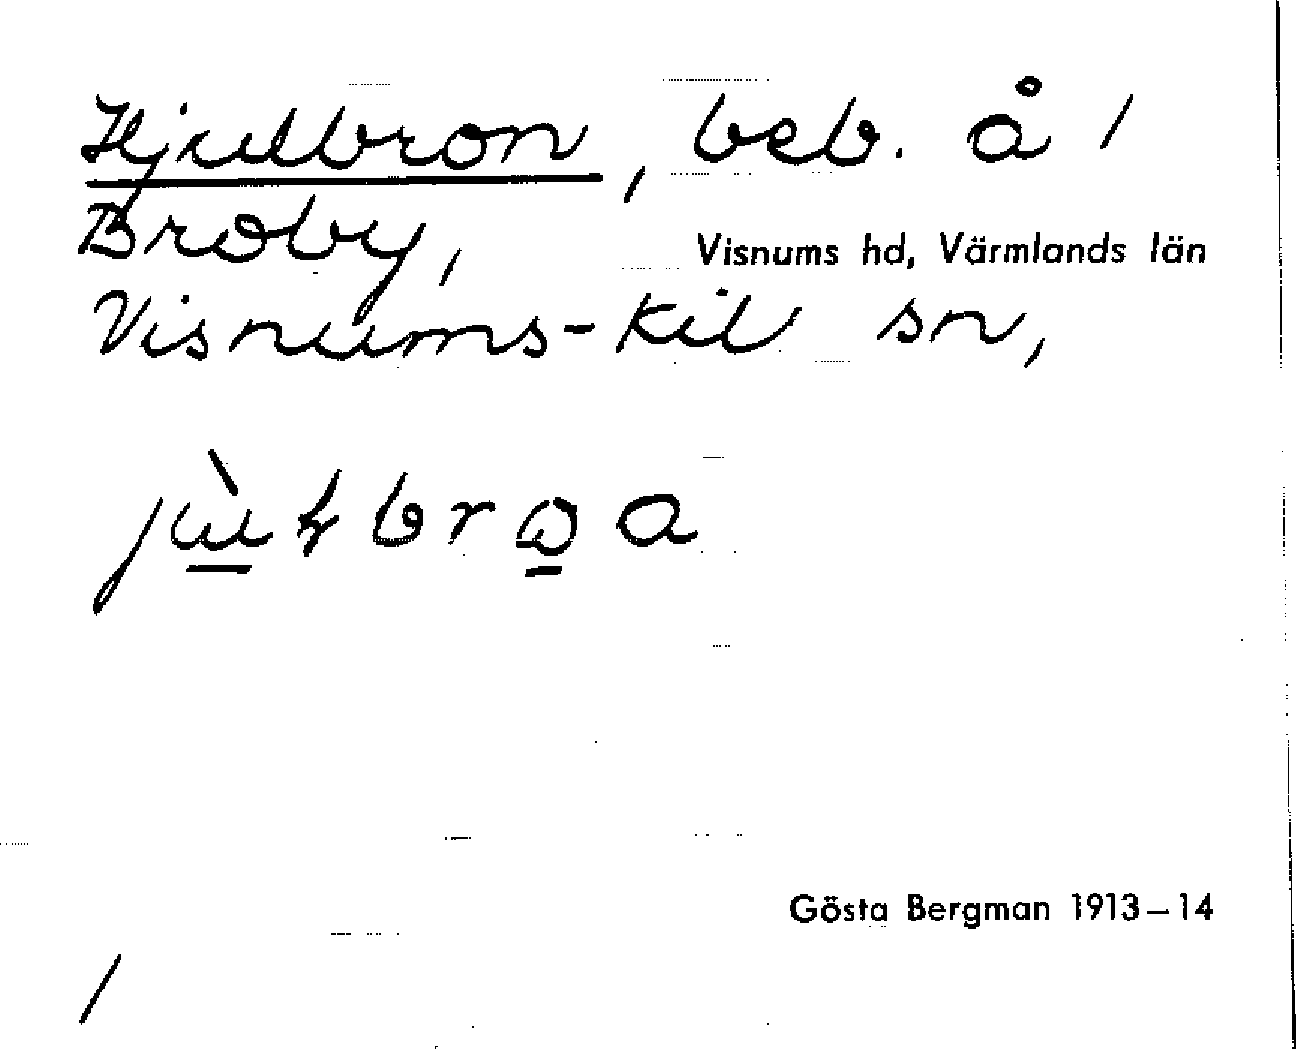 Hjulbron, beb. å /
Broby,
Visnums hd, Värmlands län
Visnums-Kil sn,
Gösta Bergman 1913–14
/